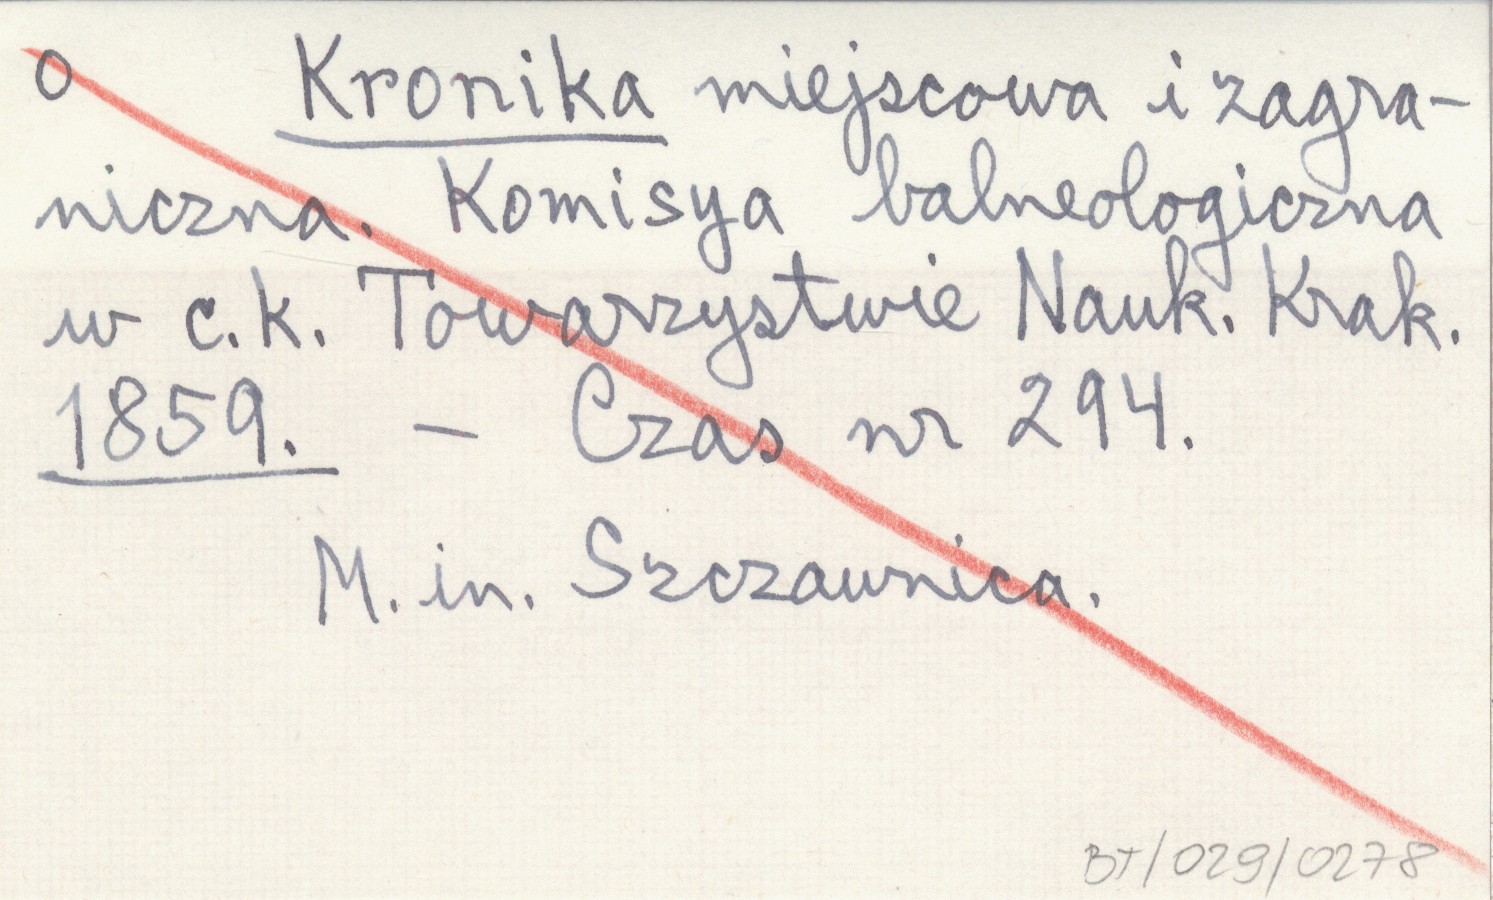 O Kronika miejscowa i zagra-
niczna. Komisya balneologiczna
w c.k. Towarzystwie Nauk. Krak.
1859. - Czas nr 294.
M. in. Szczawnica.
BT/029/0278